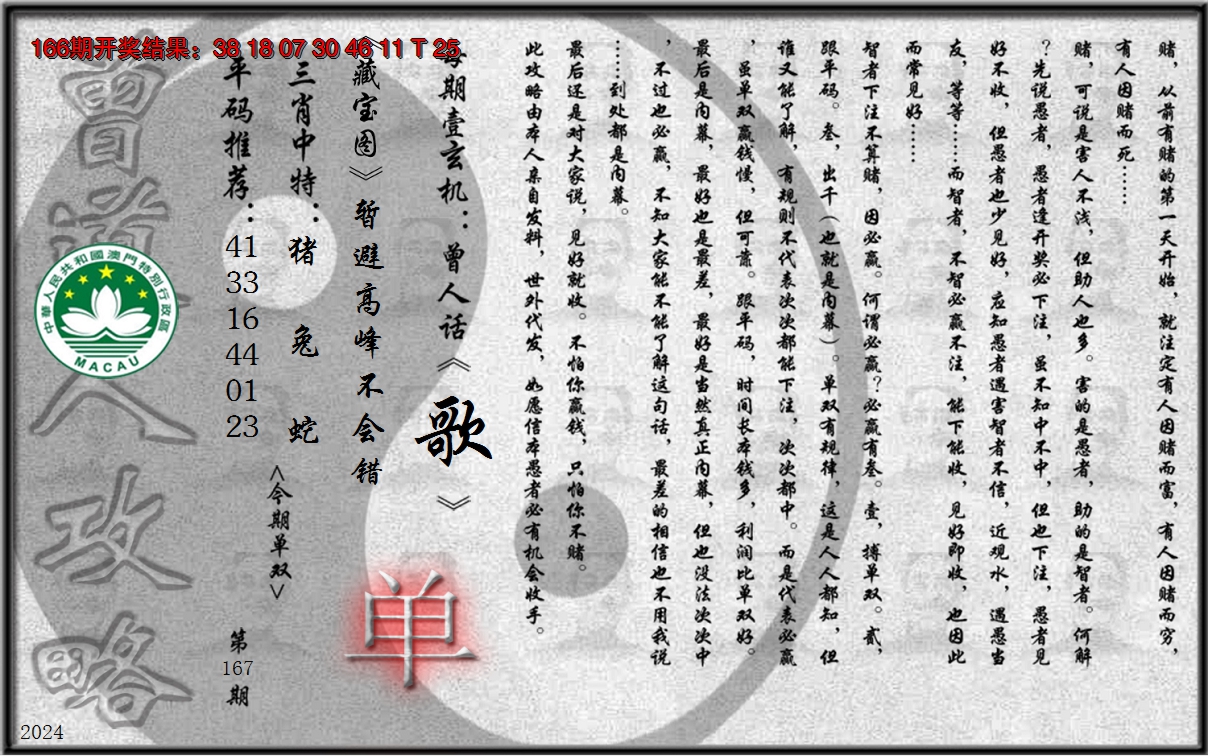 166期开奖结果：38 18 07 30 46 11 T 25
赌，从前有赌的第一天开始，就注定有人因赌而富，有人因赌而穷，
有人因赌而死……
赌，可说是害人不浅，但助人也多。害的是愚者，助的是智者。何解
？先说愚者，愚者逢开奖必下注，虽不知中不中，但也下注，愚者见
好不收，但愚者也少见好，应知愚者遇害智者不信，近观水，遇愚当
友，等等……而智者，不智必赢不注，能下能收，见好即收，也因此
而常见好……
智者下注不算赌，因必赢。何谓必赢？必赢有叁。壹，搏单双。贰，
跟平码。叁，出千（也就是内幕）。单双有规律，这是人人都知，但
谁又能了解，有规则不代表次次都能下注，次次都中。而是代表必赢
，虽单双赢钱慢，但可靠。跟平码，时间长本钱多，利润比单双好。
最后是内幕，最好也是最差，最好是当然真正内幕，但也没法次次中
，不过也必赢，不知大家能不能了解这句话，最差的相信也不用我说
……到处都是内幕。
最后还是对大家说，见好就收。不怕你赢钱，只怕你不赌。
此攻略由本人亲自发料，世外代发，如愿信本愚者必有机会收手。
每期壹玄机：曾人话《歌》
《藏宝图》暂避高峰不会错
单
三肖中特：猪 兔 蛇
<今期单双>
平码推荐：41 33 16 44 01 23
第167期
曾道人攻略
中華人民共和國澳門特別行政區
MACAU
2024